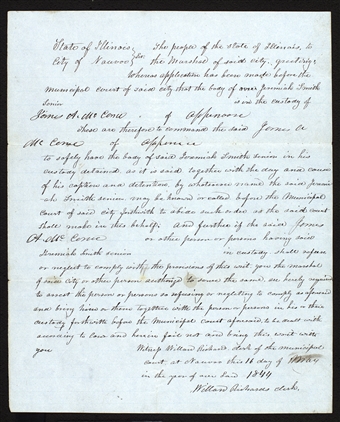 State of Illinois } The people of the state of Illinois, to
City of Nauvoo } the Marshal of said city, greeting:
Whereas application has been made before the
Municipal court of said city that the body of Jeremiah Smith
Senior is in the custody of
Jones H. McCome of
These are therefore to command the said Jones H
McCome of
to safely have the body of Jeremiah Smith senior in his
custody detained, as it is said together with the day and cause
of his caption and detention, by whatsoever name the said Jeremi-
ah Smith senior may be known or called before the Municipal
Court of said city forthwith to abide such order as the said court
shall make in this behalf. And further if the said Jones
H. McCome or other person or persons having said
Jeremiah Smith senior in custody shall refuse
or neglect to comply with the provisions of this writ you the marshal
of said city or other person authorized to serve the same, are hereby required
to arrest the person or persons so refusing or neglecting to comply as aforesaid
and bring him or them together with the person or persons in his or their
custody forthwith before the Municipal Court aforesaid to be dealt with
according to law and herein fail not and bring this writ with
you Witness Willard Richards, clerk of the municipal
court at Nauvoo this 16 day of May
in the year of our Lord 1844
Willard Richards clerk.